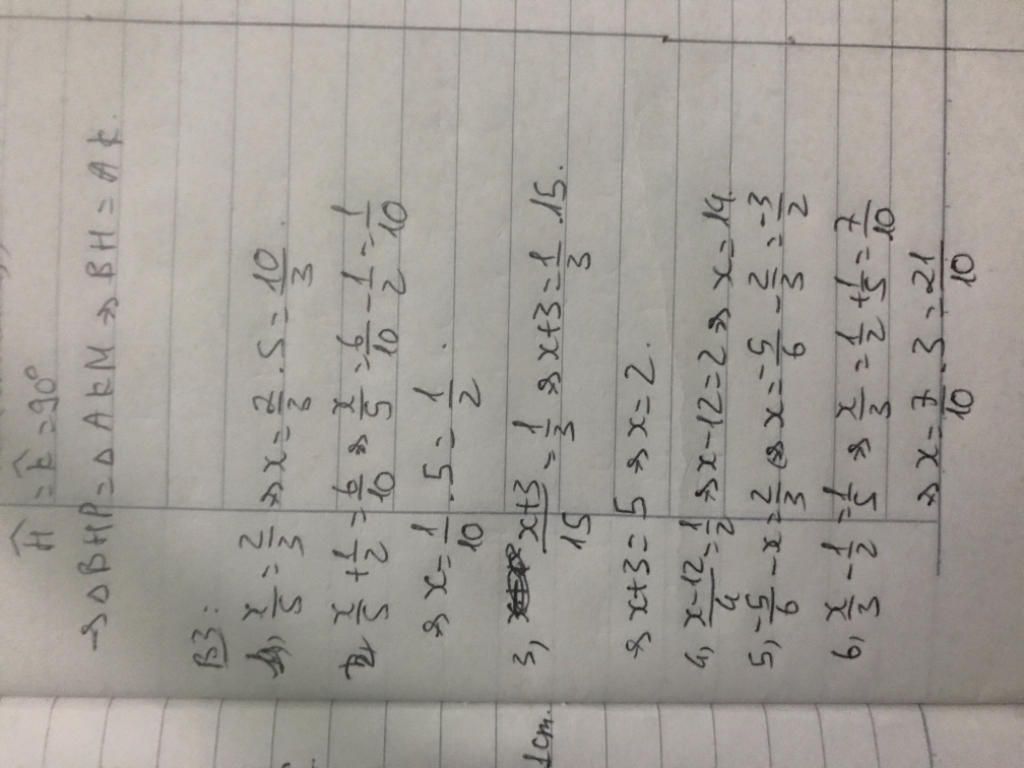 Ĥ = K̂ = 90°
→ △BHP = △AKM → BH = AK.
B3:
1, x/5 = 2/3 → x = 2/3 . 5 = 10/3 .
2, x/5 + 1/2 = 6/10 → x/5 = 6/10 - 1/2 = 1/10
→ x = 1/10 . 5 = 1/2 .
3, x+3/15 = 1/3 → x+3 = 1/3 . 15.
→ x+3 = 5 → x = 2 .
4, x-12/4 = 1/2 → x-12 = 2 → x = 14
5, -5/6 - x = 2/3 → x = -5/6 - 2/3 = -3/2
6, x/3 - 1/2 = 1/5 → x/3 = 1/2 + 1/5 = 7/10
→ x = 7/10 . 3 = 21/10
1cm.